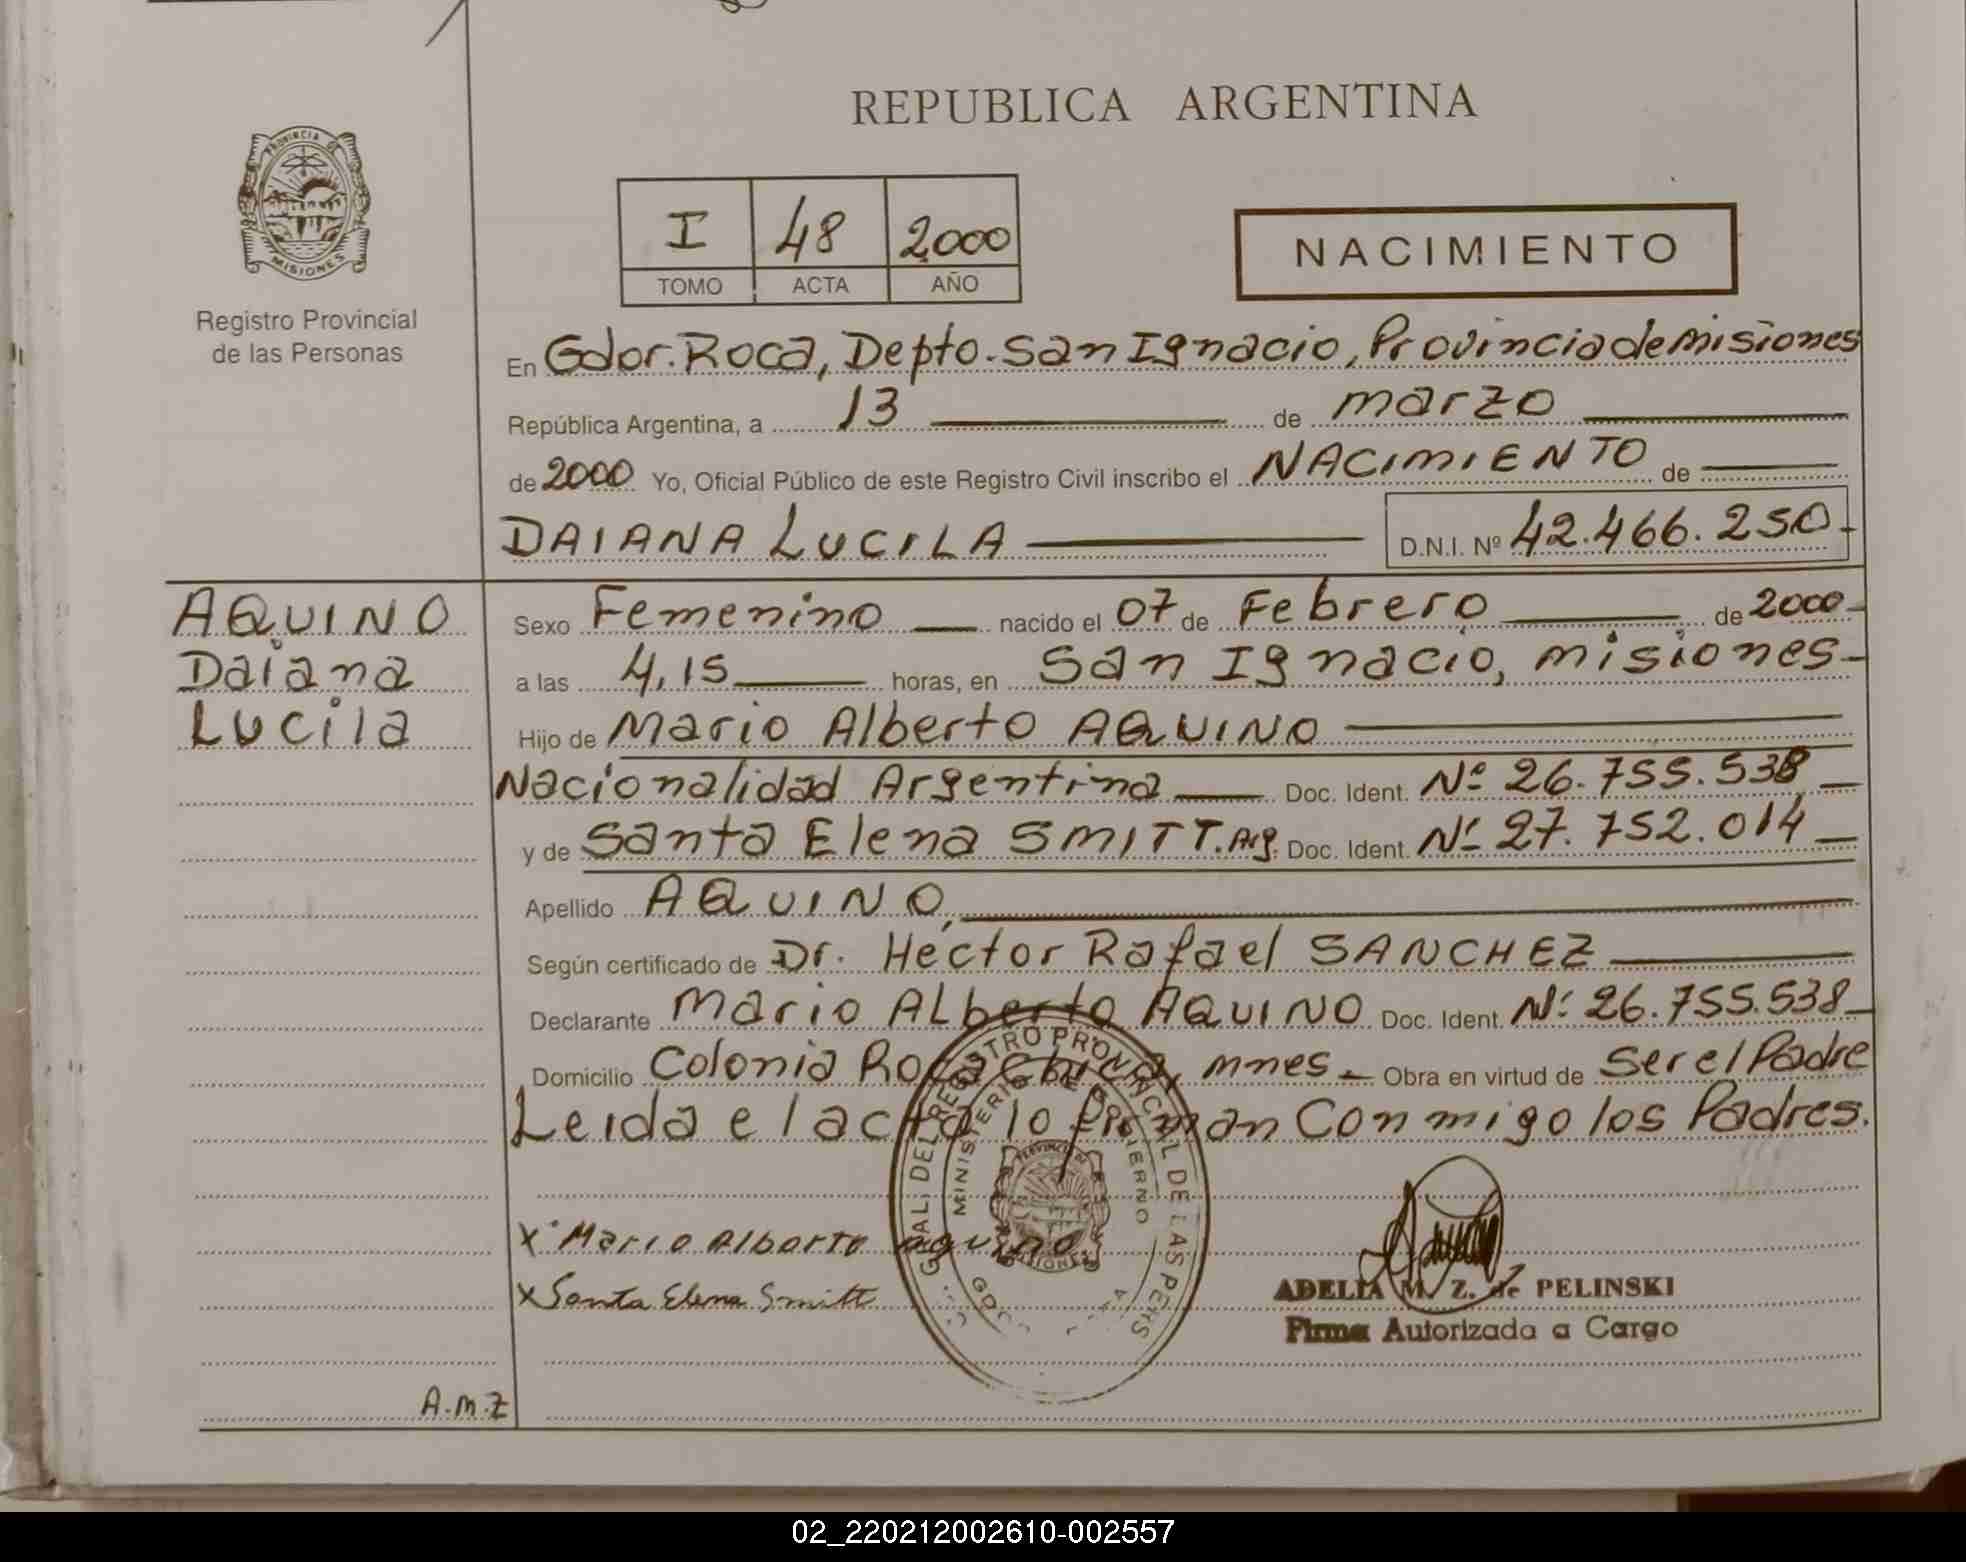 REPUBLICA ARGENTINA
PROVINCIA DE
MISIONES
Registro Provincial
de las Personas
I 48 2000
TOMO ACTA AÑO
NACIMIENTO
En Gdor. Roca, Depto. San Ignacio, Provincia de misiones
República Argentina, a 13 de marzo
de 2000 Yo, Oficial Público de este Registro Civil inscribo el NACIMIENTO de
DAIANA LUCILA D.N.I. Nº 42.466.250
AQUINO
Daiana
Lucila
Sexo Femenino nacido el 07 de Febrero de 2000
a las 4,15 horas, en San Ignacio, misiones
Hijo de Mario Alberto AQUINO
Nacionalidad Argentina Doc. Ident. Nº 26.755.538
y de Santa Elena SMITT. Arg. Doc. Ident. Nº 27.752.014
Apellido AQUINO,
Según certificado de Dr. Héctor Rafael SANCHEZ
Declarante Mario ALberto AQUINO Doc. Ident. Nº 26.755.538
Domicilio Colonia Roca Chica, mnes Obra en virtud de Ser el Padre
Leida el acta lo firman Conmigo los Padres.
GRAL. DEL REGISTRO PROVINCIAL DE LAS PERS
MINISTERIO DE GOBIERNO
PROVINCIA DE
MISIONES
X Mario Alberto Aquino
X Santa Elena Smitt
ADELIA M. Z. de PELINSKI
Firma Autorizada a Cargo
A.M.Z
02_220212002610-002557